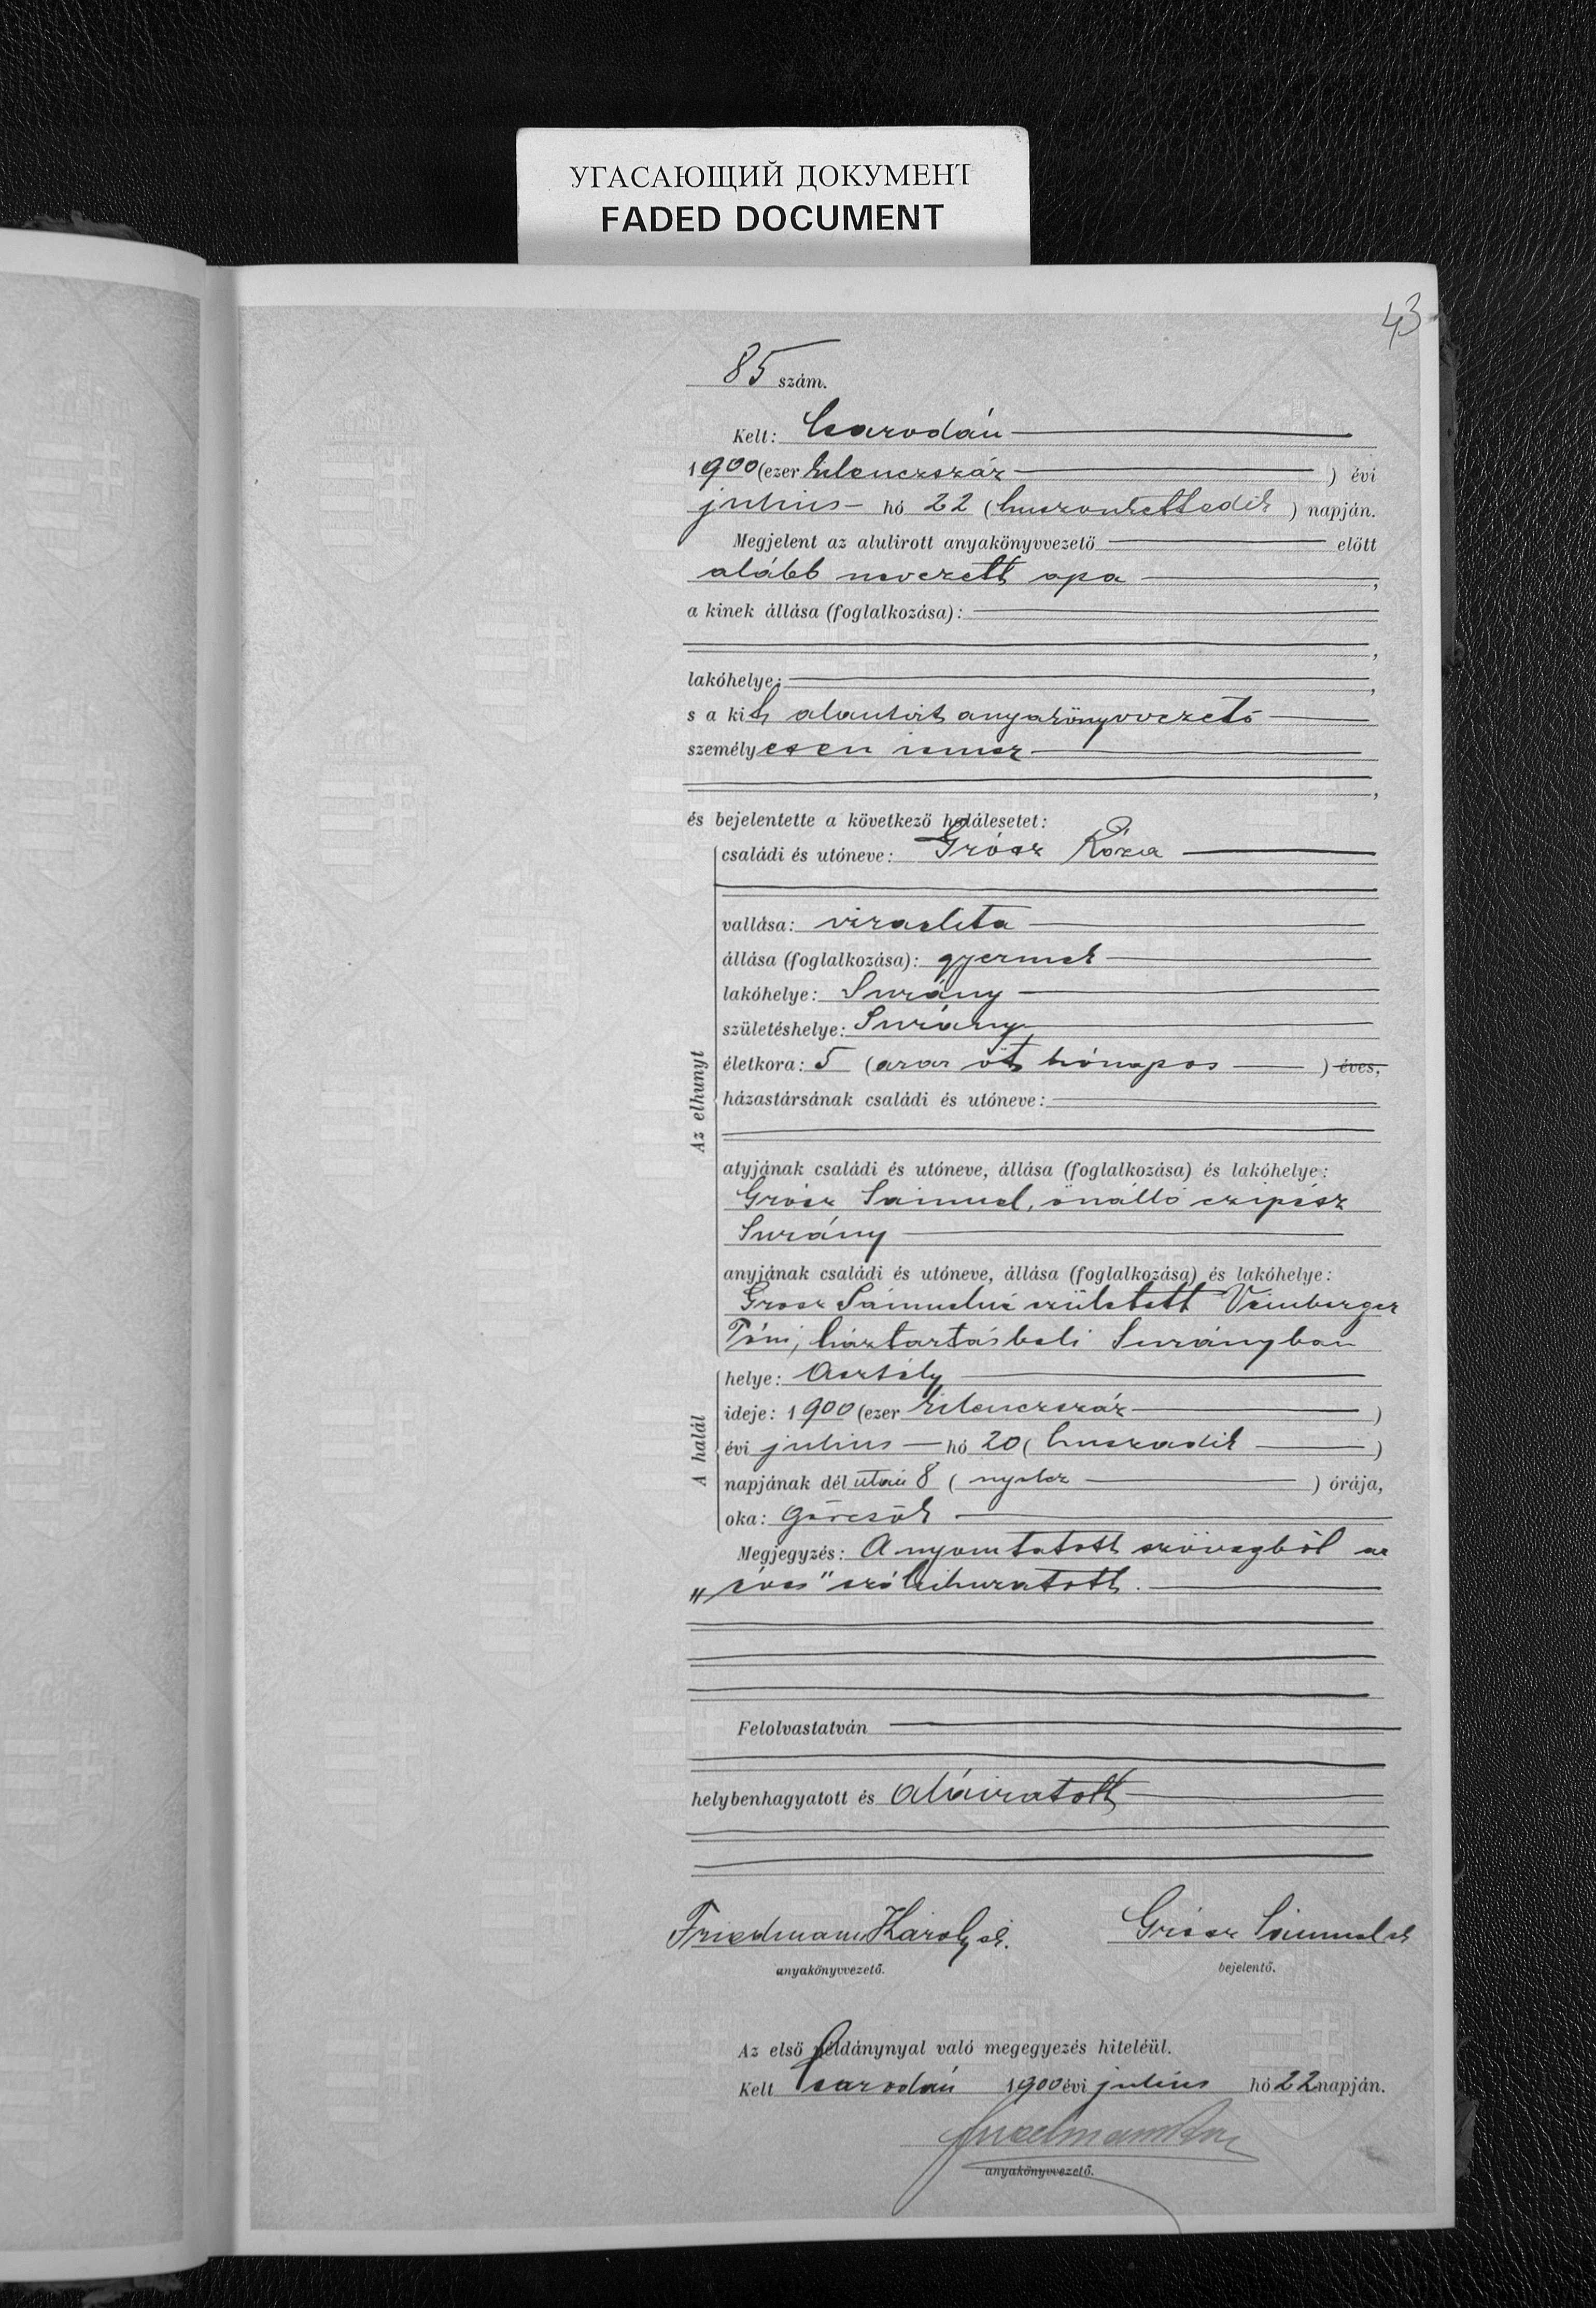 УГАСАЮЩИЙ ДОКУМЕНТ
FADED DOCUMENT
43
85 szám.
Kelt: Csarodán
1900 (ezer kilenczszáz ) évi
julius hó 22 (huszonkettedik ) napján.
Megjelent az alulirott anyakönyvvezető előtt
alább nevezett apa ,
a kinek állása (foglalkozása):
,
lakóhelye: ,
s a kit alantirt anyakönyvvezető
személyesen ismer
,
és bejelentette a következő halálesetet:
Az elhunyt
családi és utóneve: Grósz Róza
vallása: izraelita
állása (foglalkozása): gyermek
lakóhelye: Surány
születéshelye: Surány
életkora: 5 (azaz öt hónapos ) éves,
házastársának családi és utóneve:
atyjának családi és utóneve, állása (foglalkozása) és lakóhelye:
Grósz Sámuel, önálló czipész
Surány
anyjának családi és utóneve, állása (foglalkozása) és lakóhelye:
Grosz Sámuelné született Veinberger
Páni, háztartásbeli Surányban
A halál
helye: Asztély
ideje: 1900 (ezer kilenczszáz )
évi julius hó 20 ( huszadik )
napjának délután 8 ( nyolcz ) órája,
oka: görcsök
Megjegyzés: A nyomtatott szövegből az
„éves" szó kihuzatott.
Felolvastatván
helybenhagyatott és aláiratott
Friedmann Károly sk. Grósz Sámuel sk
anyakönyvvezető. bejelentő.
Az első példánynyal való megegyezés hiteléül.
Kelt Csarodán 1900 évi julius hó 22 napján.
anyakönyvvezető.